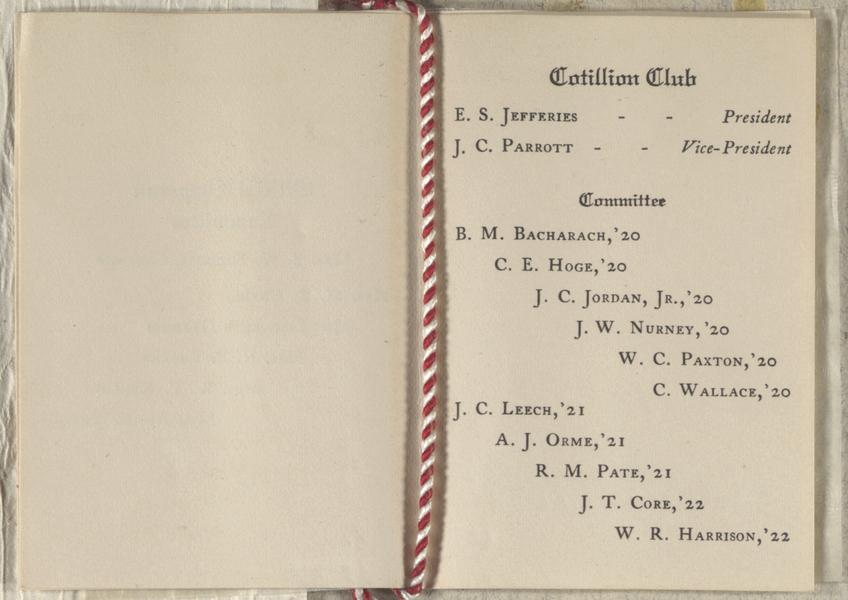 Cotillion Club
E. S. Jefferies - - President
J. C. Parrott - - Vice-President
Committee
B. M. Bacharach,'20
C. E. Hoge,'20
J. C. Jordan, Jr.,'20
J. W. Nurney,'20
W. C. Paxton,'20
C. Wallace,'20
J. C. Leech,'21
A. J. Orme,'21
R. M. Pate,'21
J. T. Core,'22
W. R. Harrison,'22